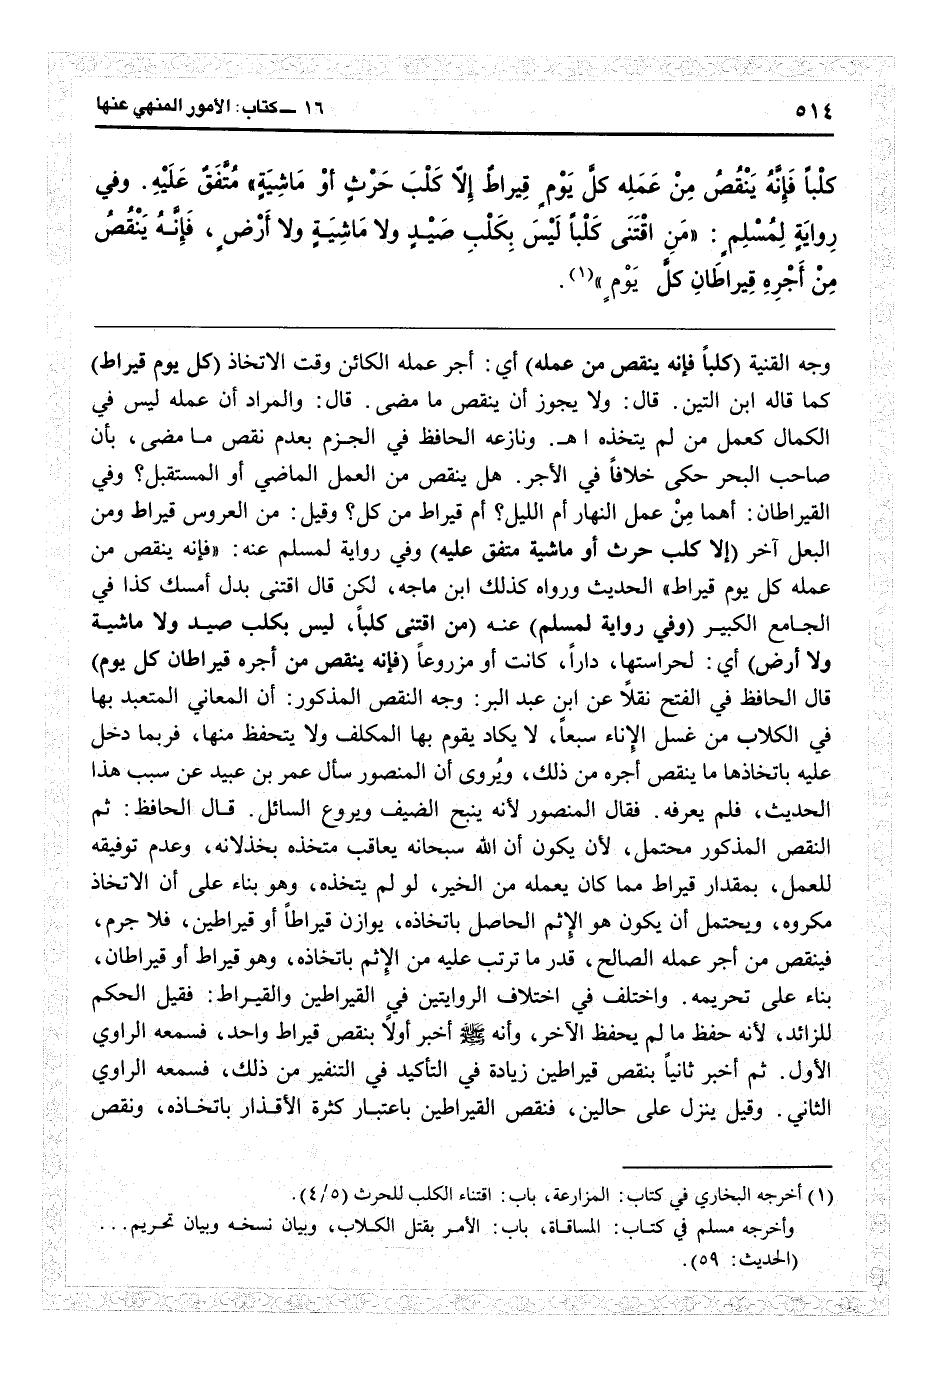 ٥١٤
١٦ ــ كتاب: الأمور المنهي عنها
كلْباً فَإِنَّهُ يَنْقُصُ مِنْ عَمَلِه كلَّ يَوْمٍ قِيراطٌ إِلَّا كَلْبَ حَرْثٍ أوْ مَاشِيَةٍ» مُتَّفَقٌ عَلَيْهِ. وفي
رِوايَةٍ لِمُسْلِمٍ: «مَنِ اقْتَنَى كَلْباً لَيْسَ بِكَلْبِ صَيْـدٍ ولا مَاشِيَـةٍ ولا أَرْضٍ، فَإِنَّـهُ يَنْقُصُ
مِنْ أَجْرِهِ قِيراطَانِ كلَّ يَوْمٍ»(١).
وجه القنية (كلباً فإنه ينقص من عمله) أي: أجر عمله الكائن وقت الاتخاذ (كل يوم قيراط)
كما قاله ابن التين. قال: ولا يجوز أن ينقص ما مضى. قال: والمراد أن عمله ليس في
الكمال كعمل من لم يتخذه ا هـ. ونازعه الحافظ في الجـزم بعدم نقص مـا مضى، بأن
صاحب البحر حكى خلافاً في الأجر. هل ينقص من العمل الماضي أو المستقبل؟ وفي
القيراطان: أهما مِنْ عمل النهار أم الليل؟ أم قيراط من كل؟ وقيل: من العروس قيراط ومن
البعل آخر (إلا كلب حرث أو ماشية متفق عليه) وفي رواية لمسلم عنه: «فإنه ينقص من
عمله كل يوم قيراط» الحديث ورواه كذلك ابن ماجه، لكن قال اقتنى بدل أمسك كذا في
الجـامع الكبيـر (وفي رواية لمسلم) عنـه (من اقتنى كلباً، ليس بكلب صيـد ولا ماشيـة
ولا أرض) أي: لحراستها، داراً، كانت أو مزروعاً (فإنه ينقص من أجره قيراطان كل يوم)
قال الحافظ في الفتح نقلاً عن ابن عبد البر: وجه النقص المذكور: أن المعاني المتعبد بها
في الكلاب من غسل الإِناء سبعاً، لا يكاد يقوم بها المكلف ولا يتحفظ منها، فربما دخل
عليه باتخاذها ما ينقص أجره من ذلك، ويُروى أن المنصور سأل عمر بن عبيد عن سبب هذا
الحديث، فلم يعرفه. فقال المنصور لأنه ينبح الضيف ويروع السائل. قـال الحافظ: ثم
النقص المذكور محتمل، لأن يكون أن الله سبحانه يعاقب متخذه بخذلانه، وعدم توفيقه
للعمل، بمقدار قيراط مما كان يعمله من الخير، لو لم يتخذه، وهو بناء على أن الاتخاذ
مكروه، ويحتمل أن يكون هو الإِثم الحاصل باتخاذه، يوازن قيراطاً أو قيراطين، فلا جرم،
فينقص من أجر عمله الصالح، قدر ما ترتب عليه من الإِثم باتخاذه، وهو قيراط أو قيراطان،
بناء على تحريمه. واختلف في اختلاف الروايتين في القيراطين والقيـراط: فقيل الحكم
للزائد، لأنه حفظ ما لم يحفظ الآخر، وأنه ﷺ أخبر أولاً بنقص قيراط واحد، فسمعه الراوي
الأول. ثم أخبر ثانياً بنقص قيراطين زيادة في التأكيد في التنفير من ذلك، فسمعه الراوي
الثاني. وقيل ينزل على حالين، فنقص القيراطين باعتبار كثرة الأقـذار باتخـاذه، ونقص
(١) أخرجه البخاري في كتاب: المزارعة، باب: اقتناء الكلب للحرث (٤/٥).
وأخرجه مسلم في كتـاب: المساقاة، باب: الأمـر بقتل الكـلاب، وبيان نسخـه وبيان تحريم...
(الحديث: ٥٩).